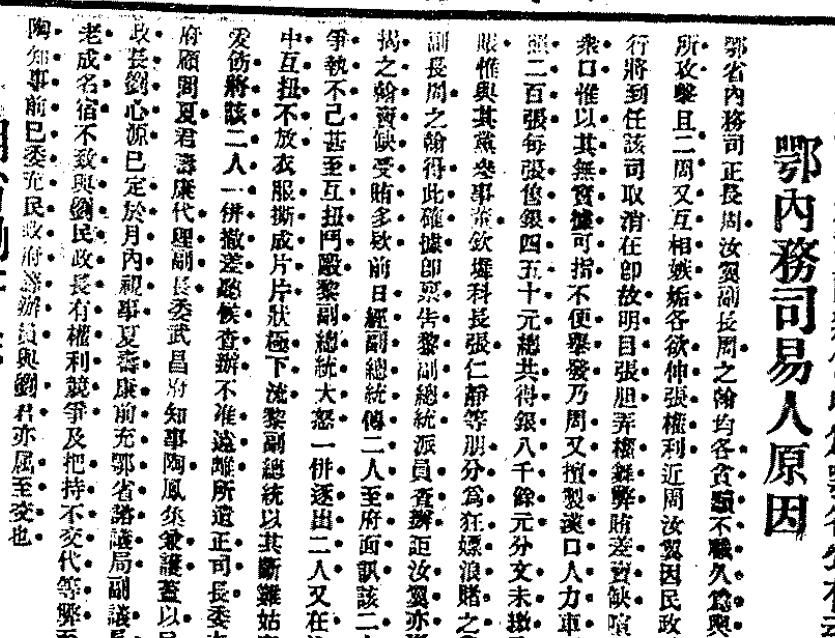 鄂內務司易人原因
鄂省內務司正長周汝翼副長周之翰均各貪顯不職久爲輿
所攻擊且二周又互相嫉妬各欲伸張權利近周汝翼因民政
行將到任該司取消在卽故明目張胆弄權舞弊賄差賣缺喧
衆口惟以其無實據可指不便舉發乃周又擅製漢口人力車
照二百張每張售銀四五十元總共得銀八千餘元分文未繳
賬惟與其黨參事欽墀科長張仁靜等朋分爲狂嫖浪賭之
副長周之翰得此確據卽禀吿黎副總統派員查辦詎汝翼亦
揭之翰賣缺受賄多欵前日經副總統傳二人至府面訊該二
爭執不己甚至互扭鬥毆黎副總統大怒一併逐出二人又在
中互扭不放衣服撕成片片狀極下流黎副總統以其斷難姑
爰飭將該二人一併撤差聽候查辦不准遠離所遺正司長委
府顧問夏君壽康代理副長委武昌府知事陶鳳集兼護蓋以
政長劉心源已定於月內視事夏壽康前充鄂省諮議局副議
老成名宿不致與劉民政長有權利競爭及把持不交代等弊
陶知事前已委充民政府籌辦員與劉君亦屬至交也